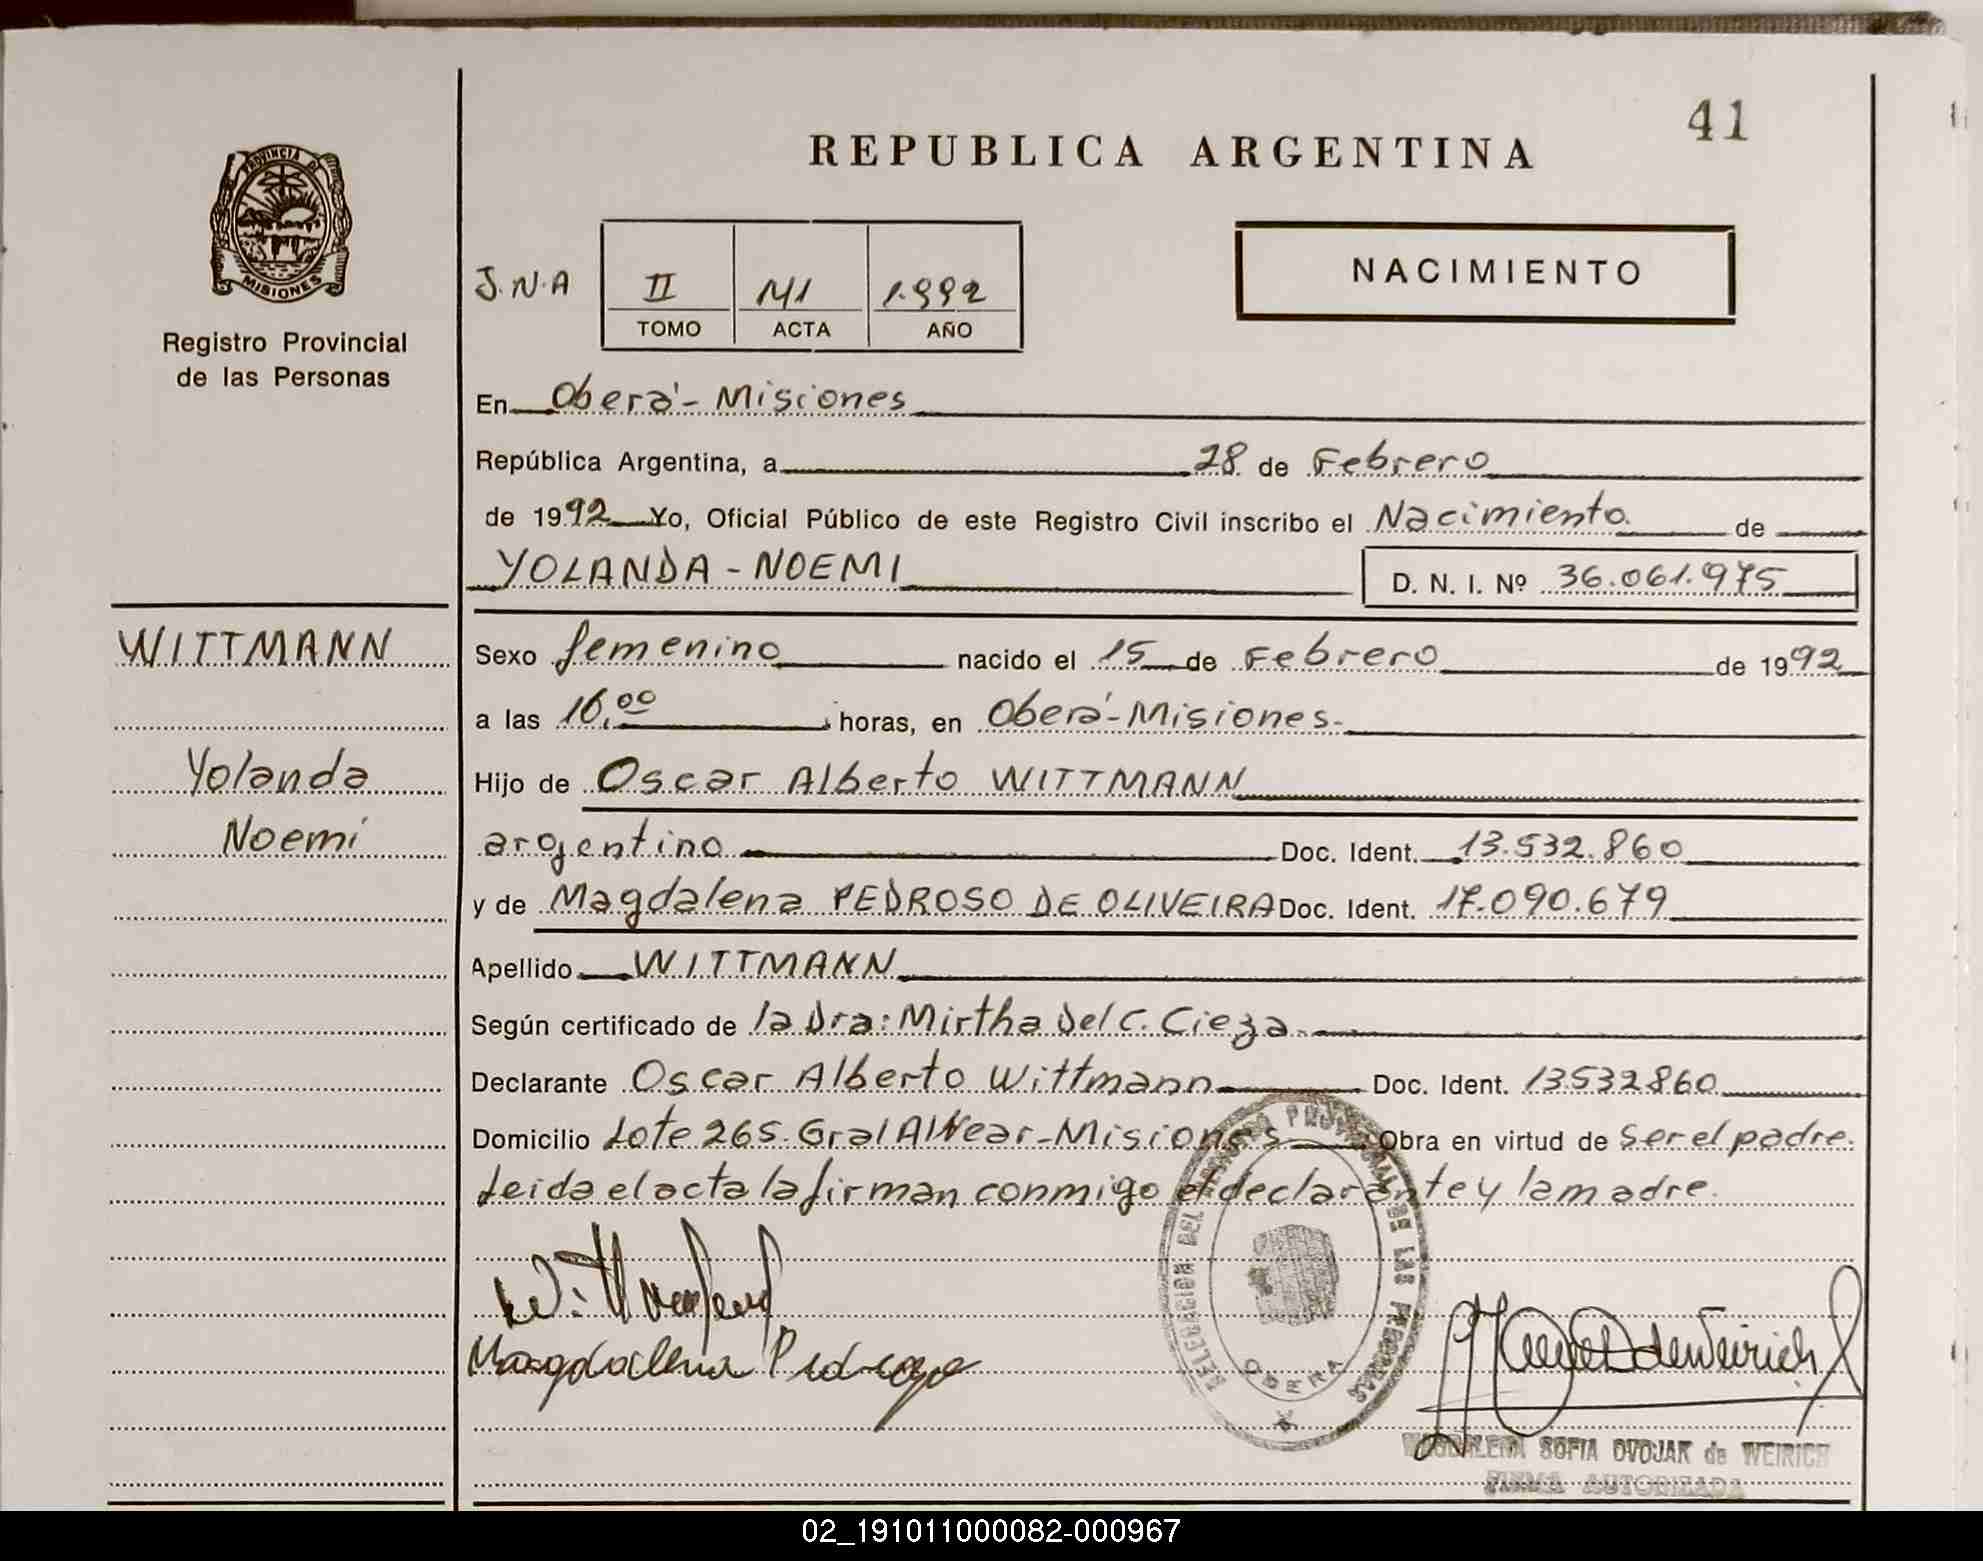 41
REPUBLICA ARGENTINA
PROVINCIA DE
MISIONES
Registro Provincial
de las Personas
J.N.A
II 141 1.992
TOMO ACTA AÑO
NACIMIENTO
En Oberá - Misiones
República Argentina, a 28 de Febrero
de 1992 Yo, Oficial Público de este Registro Civil inscribo el Nacimiento de
YOLANDA - NOEMI
D. N. I. Nº 36.061.975
WITTMANN
Yolanda
Noemí
Sexo femenino nacido el 15 de Febrero de 1992
a las 16,00 horas, en Oberá - Misiones.
Hijo de Oscar Alberto WITTMANN
argentino Doc. Ident. 13.532.860
y de Magdalena PEDROSO DE OLIVEIRA Doc. Ident. 17.090.679
Apellido WITTMANN
Según certificado de la Dra: Mirtha del C. Cieza
Declarante Oscar Alberto Wittmann Doc. Ident. 13.532860
Domicilio Lote 265. Gral Alvear - Misiones Obra en virtud de ser el padre.
Leida el acta la firman conmigo el declarante y la madre.
DELEGACION DEL REGISTRO PROVINCIAL DE LAS PERSONAS
OBERA
Magdalena
de Weirich
MAGDALENA SOFIA OVOJAK de WEIRICH
FIRMA AUTORIZADA
02_191011000082-000967